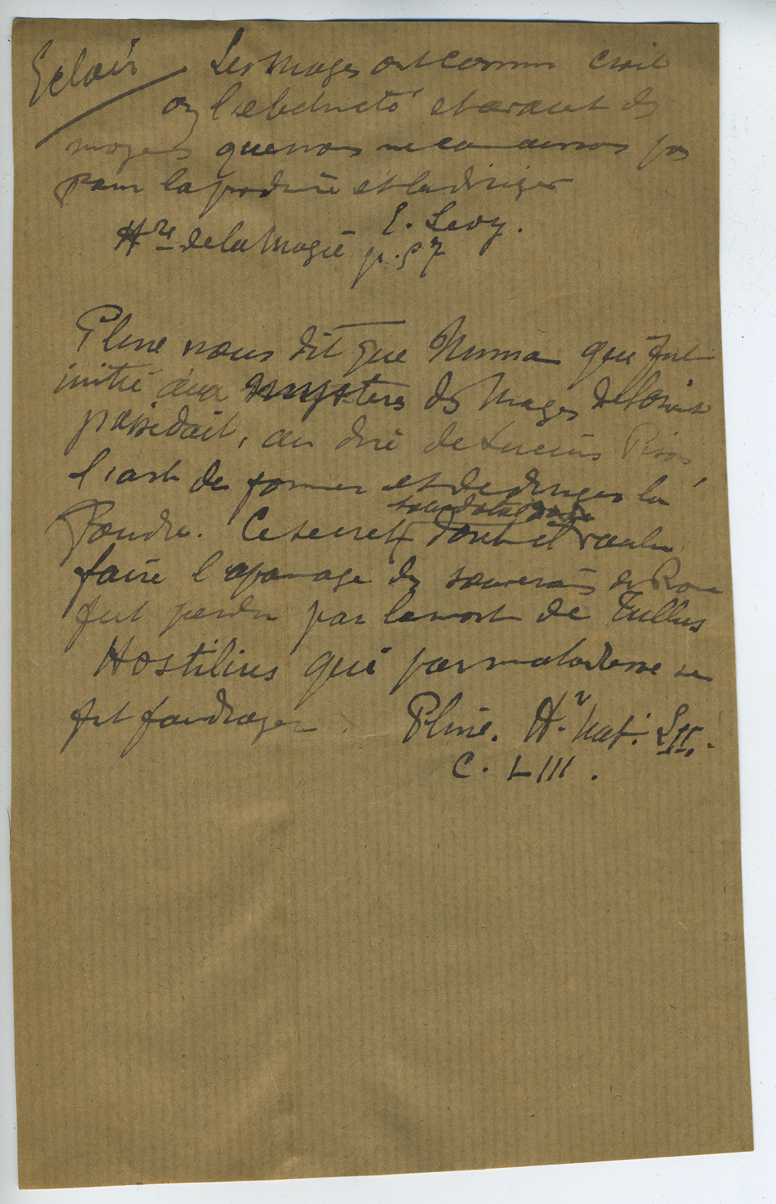 Eclair Les Mages ont connu
l'electricité et avaient des
moyens que nous ne connaissons pas
pour la produire et la diriger
E. Levy.
Hre de la Magie p. 57
Pline nous dit que Numa qui fut
initié aux mysteres des Mages
possedait, au dire de Lucius Pison
l'art de former et de diriger la
foudre. Ce secret dont il voulu
faire l'apanage des souverains de Rome
fut perdu par la mort de Tullus
Hostilius qui par maladresse se
fit foudroyer. Pline. Hr Nat. L II.
C. LIII.